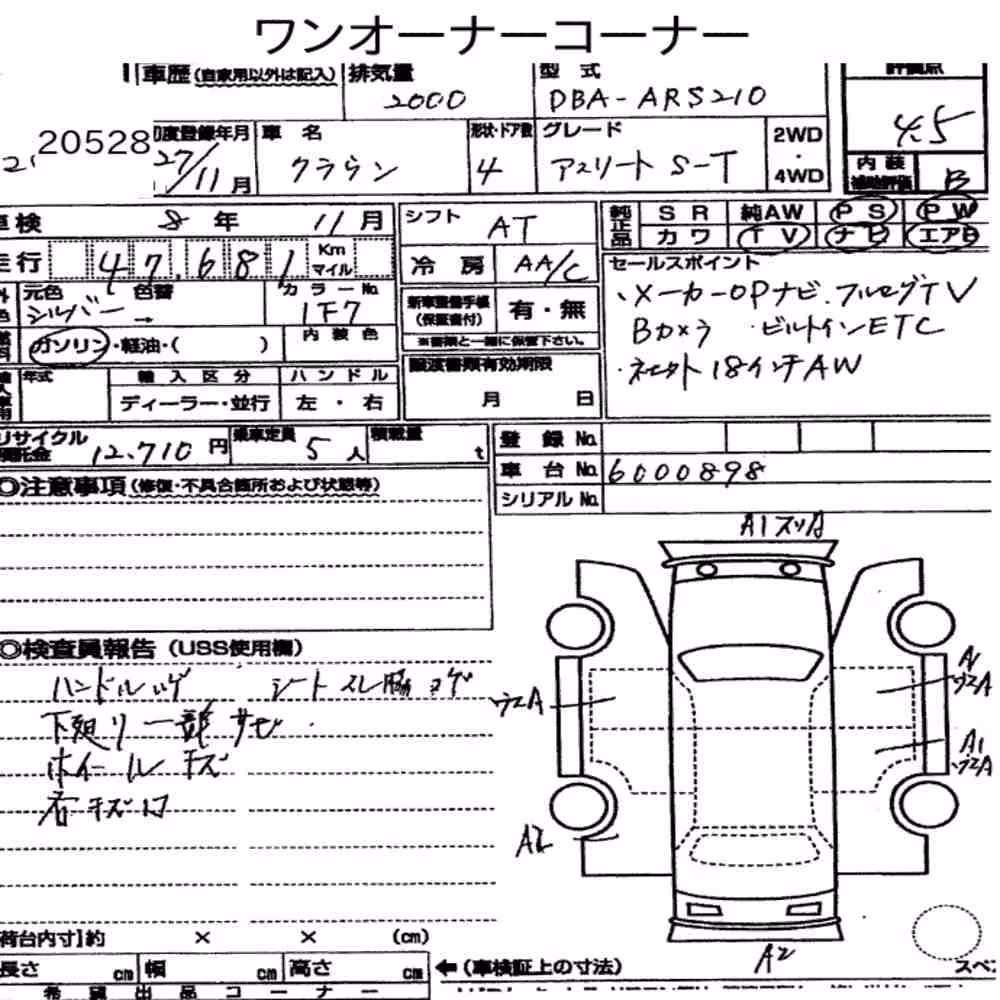 ワンオーナーコーナー
車歴(自家用以外は記入) 排気量 型式 評価点
2000 DBA-ARS210 4.5
20528 初度登録年月 車名 形状・ドア数 グレード 2WD・4WD
27/11月 クラウン 4 アスリート S-T 内装補助評価 B
車検 8年 11月 シフト AT 純正品 SR 純AW PS PW
カワ TV ナビ エアB
走行 47,681 Km マイル 冷房 AA/C セールスポイント
元色 シルバー 色替 カラーNo. 1F7 新車整備手帳(保証書付) 有・無
※書類と一緒に保管下さい。
・メーカーOPナビ.フルセグTV
Bカメラ ・ビルトインETC
18インチAW
ガソリン・軽油・( ) 内装色
譲渡書類有効期限
月 日
年式 輸入区分 ハンドル
ディーラー・並行 左・右
リサイクル預託金 12,710円 乗車定員 5人 積載量 t
登録No.
車台No. 6000898
シリアルNo.
◎注意事項(修復・不具合箇所および状態等)
A1
◎検査員報告(USS使用欄)
ハンドルハゲ シートスレ
下廻り一部サビ
ホイールキズ
A1
A1
A2
A2
荷台内寸]約 × × (cm)
長さ cm 幅 cm 高さ cm ←(車検証上の寸法)
スペ
希望出品コーナー